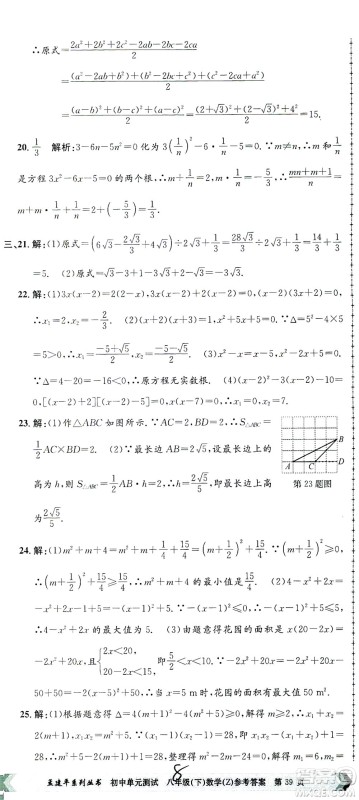 ∴原式=(2a²+2b²+2c²-2ab-2bc-2ca)/2
=((a²-2ab+b²)+(b²-2bc+c²)+(a²-2ac+c²))/2
=((a-b)²+(b-c)²+(a-c)²)/2=((2+√3)²+(2-√3)²+4²)/2=15.
20. 1/3 解析:3-6n-5n²=0化为3(1/n)²-6·1/n-5=0.∵m≠n,∴m和1/n
是方程3x²-6x-5=0的两个根,∴m+1/n=2,m·1/n=-5/3,∴(mn+m+1)/n=
m+m·1/n+1/n=2+(-5/3)=1/3.
三、21.解:(1)原式=(6√3-2√3/3+4√3)÷2√3+1/3=28√3/3÷2√3+1/3=14/3+1/3
=5. (2)原式=√3-3+1-3√3-2+2√3=-4.
22.解:(1)3x(x-2)=2(2-x),3x(x-2)+2(x-2)=0,(x-2)(3x+2)=
0,∴x₁=2,x₂=-2/3. (2)(x+2)(x+3)=1,x²+5x+5=0.∵Δ=5²-4×5
=5>0,∴x₁=(-5+√5)/2,x₂=(-5-√5)/2.
∵Δ=4-20=-16<0,∴原方程无实数根. (4)(x-2)²-3(x-2)-10=
0,[(x-2)+2][(x-2)-5]=0,x(x-7)=0,∴x₁=0,x₂=7.
23.解:(1)作△ABC如图所示.∵AC=2,BD=2,∴S△ABC=
1/2AC×BD=2. (2)∵最长边AB=2√5,设最长边上的
高为h,则S△ABC=1/2AB·h=2,∴h=2√5/5,即最长边上高
为2√5/5.
A C B
第23题图
24.解:(1)m²+m+4=m²+m+1/4+15/4=(m+1/2)²+15/4.∵(m+1/2)²≥0,
∴(m+1/2)²+15/4≥15/4,∴m²+m+4的最小值是15/4. (2)4-x²+2x=
-x²+2x-1+5=-(x-1)²+5.∵-(x-1)²≤0,∴-(x-1)²+5≤5,
∴4-x²+2x的最大值为5. (3)由题意得花园的面积是x(20-2x)=
-2x²+20x,且{2x<20, 20-2x<15,即5/2<x<10.∵-2x²+20x=-2(x-5)²+
50=-2(x-5)²+50≤50,∴当x=5时,花园的面积有最大值50.
25.解:(1)根据题意得Δ=4(m+1)²-4(m²+5)≥0,解得m≥2,∴x₁+x₂=
2(m+1),x₁x₂=m²+5.∵(x₁-1)(x₂-1)=28,即x₁x₂-(x₁+x₂)+1=
28,∴m²+5-2(m+1)+1=28,整理得m²-2m-24=0,解得m₁=6,m₂
孟建平系列丛书 初中单元测试 八年级(下)数学(Z)参考答案 第39页
8